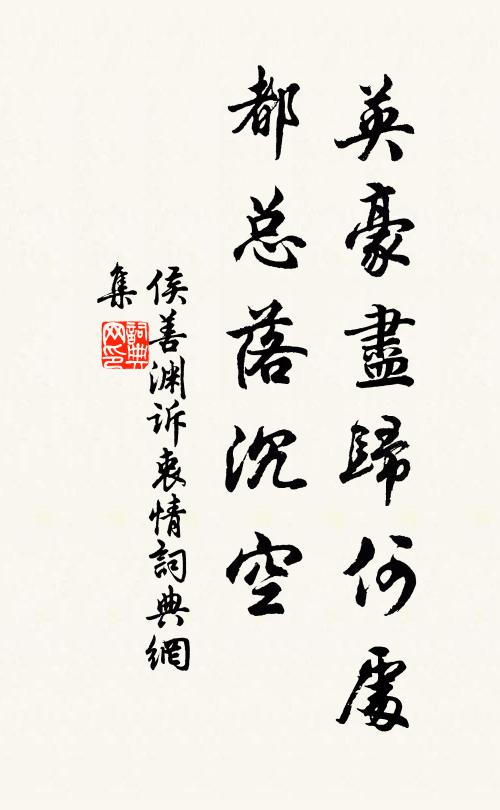 英豪盡歸何處
都总落沉空
侯善渊诉衷情詞典網
集
詞典
网印